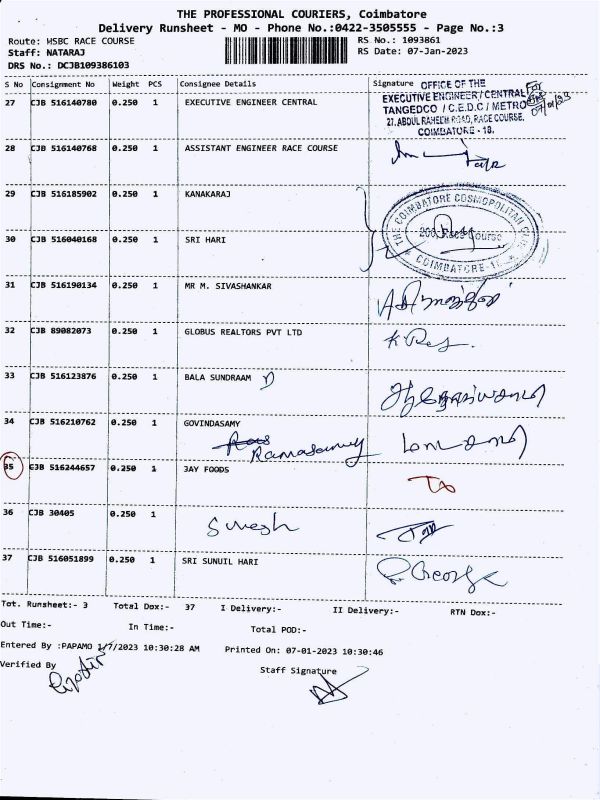 THE PROFESSIONAL COURIERS, Coimbatore
Delivery Runsheet - MO - Phone No.:0422-3505555 - Page No.:3
Route: HSBC RACE COURSE
RS No.: 1093861
Staff: NATARAJ
RS Date: 07-Jan-2023
DRS No.: DCJB109386103
S No Consignment No Weight PCS Consignee Details Signature
27 CJB 516140780 0.250 1 EXECUTIVE ENGINEER CENTRAL
OFFICE OF THE
EXECUTIVE ENGINEER/CENTRAL
TANGEDCO / C.E.D.C / METRO
27, ABDUL RAHEEM ROAD, RACE COURSE,
COIMBATORE - 18.
For
07/01/23
28 CJB 516140768 0.250 1 ASSISTANT ENGINEER RACE COURSE
29 CJB 516185902 0.250 1 KANAKARAJ
THE COIMBATORE COSMOPOLITAN CLUB
Race Course
COIMBATORE-18
30 CJB 516040168 0.250 1 SRI HARI
31 CJB 516190134 0.250 1 MR M. SIVASHANKAR
32 CJB 89082073 0.250 1 GLOBUS REALTORS PVT LTD
33 CJB 516123876 0.250 1 BALA SUNDRAAM
34 CJB 516210762 0.250 1 GOVINDASAMY
Ramasamy
35 CJB 516244657 0.250 1 JAY FOODS
36 CJB 30405 0.250 1
Suresh
37 CJB 516051899 0.250 1 SRI SUNUIL HARI
George
Tot. Runsheet:- 3 Total Dox:- 37 I Delivery:- II Delivery:- RTN Dox:-
Out Time:- In Time:- Total POD:-
Entered By :PAPAMO 1/7/2023 10:30:28 AM Printed On: 07-01-2023 10:30:46
Verified By
Staff Signature